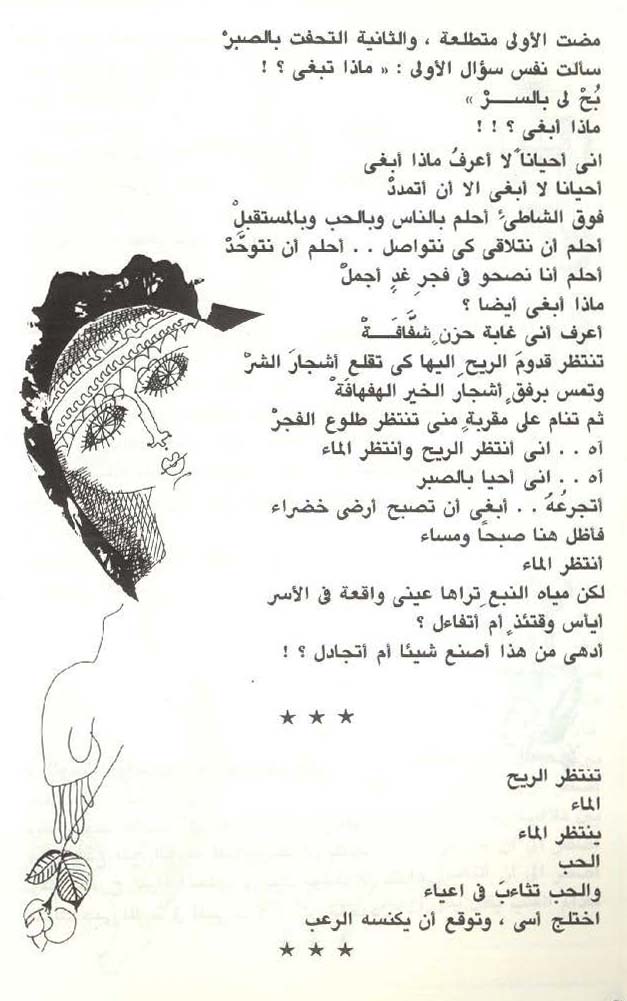 مضت الأولى متطلعة ، والثانية التحفت بالصبرْ
سألت نفس سؤال الأولى : « ماذا تبغى ؟ !
بُحْ لى بالســـرْ »
ماذا أبغى ؟ ! !
انى أحياناً لا أعرفُ ماذا أبغى
أحيانا لا أبغى الا أن أتمددْ
فوق الشاطىءِ أحلم بالناس وبالحب وبالمستقبلْ
أحلم أن نتلاقى كى نتواصل . . أحلم أن نتوحَّدْ
أحلم أنا نصحو فى فجرِ غدٍ أجملْ
ماذا أبغى أيضا ؟
أعرف أنى غابة حزنٍ شفَّافَـــةْ
تنتظر قدومَ الريحِ اليها كى تقلع أشجارَ الشرْ
وتمس برفقٍ أشجارَ الخير الهفهافَةْ
ثم تنام على مقربةٍ منى تنتظر طلوع الفجرْ
آه . . انى أنتظر الريح وأنتظر الماء
آه . . انى أحيا بالصبر
أتجرعُهُ . . أبغى أن تصبح أرضى خضراء
فأظل هنا صبحاً ومساء
أنتظر الماء
لكن مياه النبعِ تراها عينى واقعة فى الأسر
أيأس وقتئذٍ أم أتفاءل ؟
أدهى من هذا أصنع شيئا أم أتجادل ؟ !
★ ★ ★
تنتظر الريح
الماء
ينتظر الماء
الحب
والحب تثاءبَ فى اعياء
اختلج أسى ، وتوقع أن يكنسه الرعب
★ ★ ★